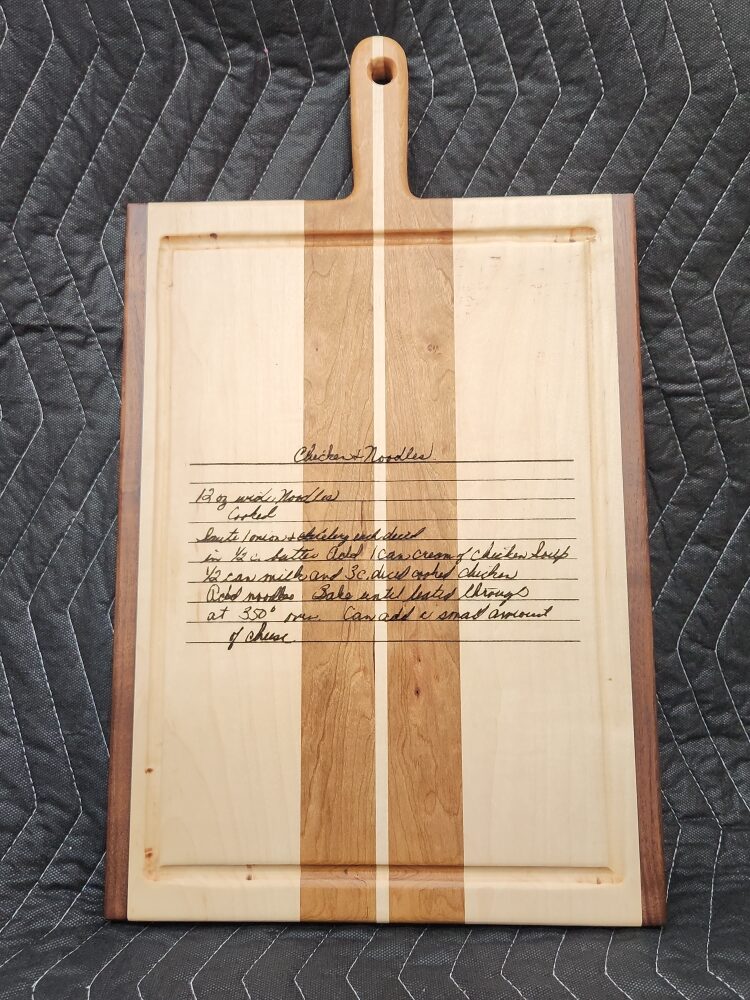 Chicken + Noodles
12 oz wide Noodles
Cooked
Saute 1 onion + celery each diced
in 1/2 c. butter Add 1 can cream of chicken Soup
1/2 can milk and 3 c. diced cooked chicken
Add noodles Bake until heated through
at 350° oven Can add a small amount
of cheese.